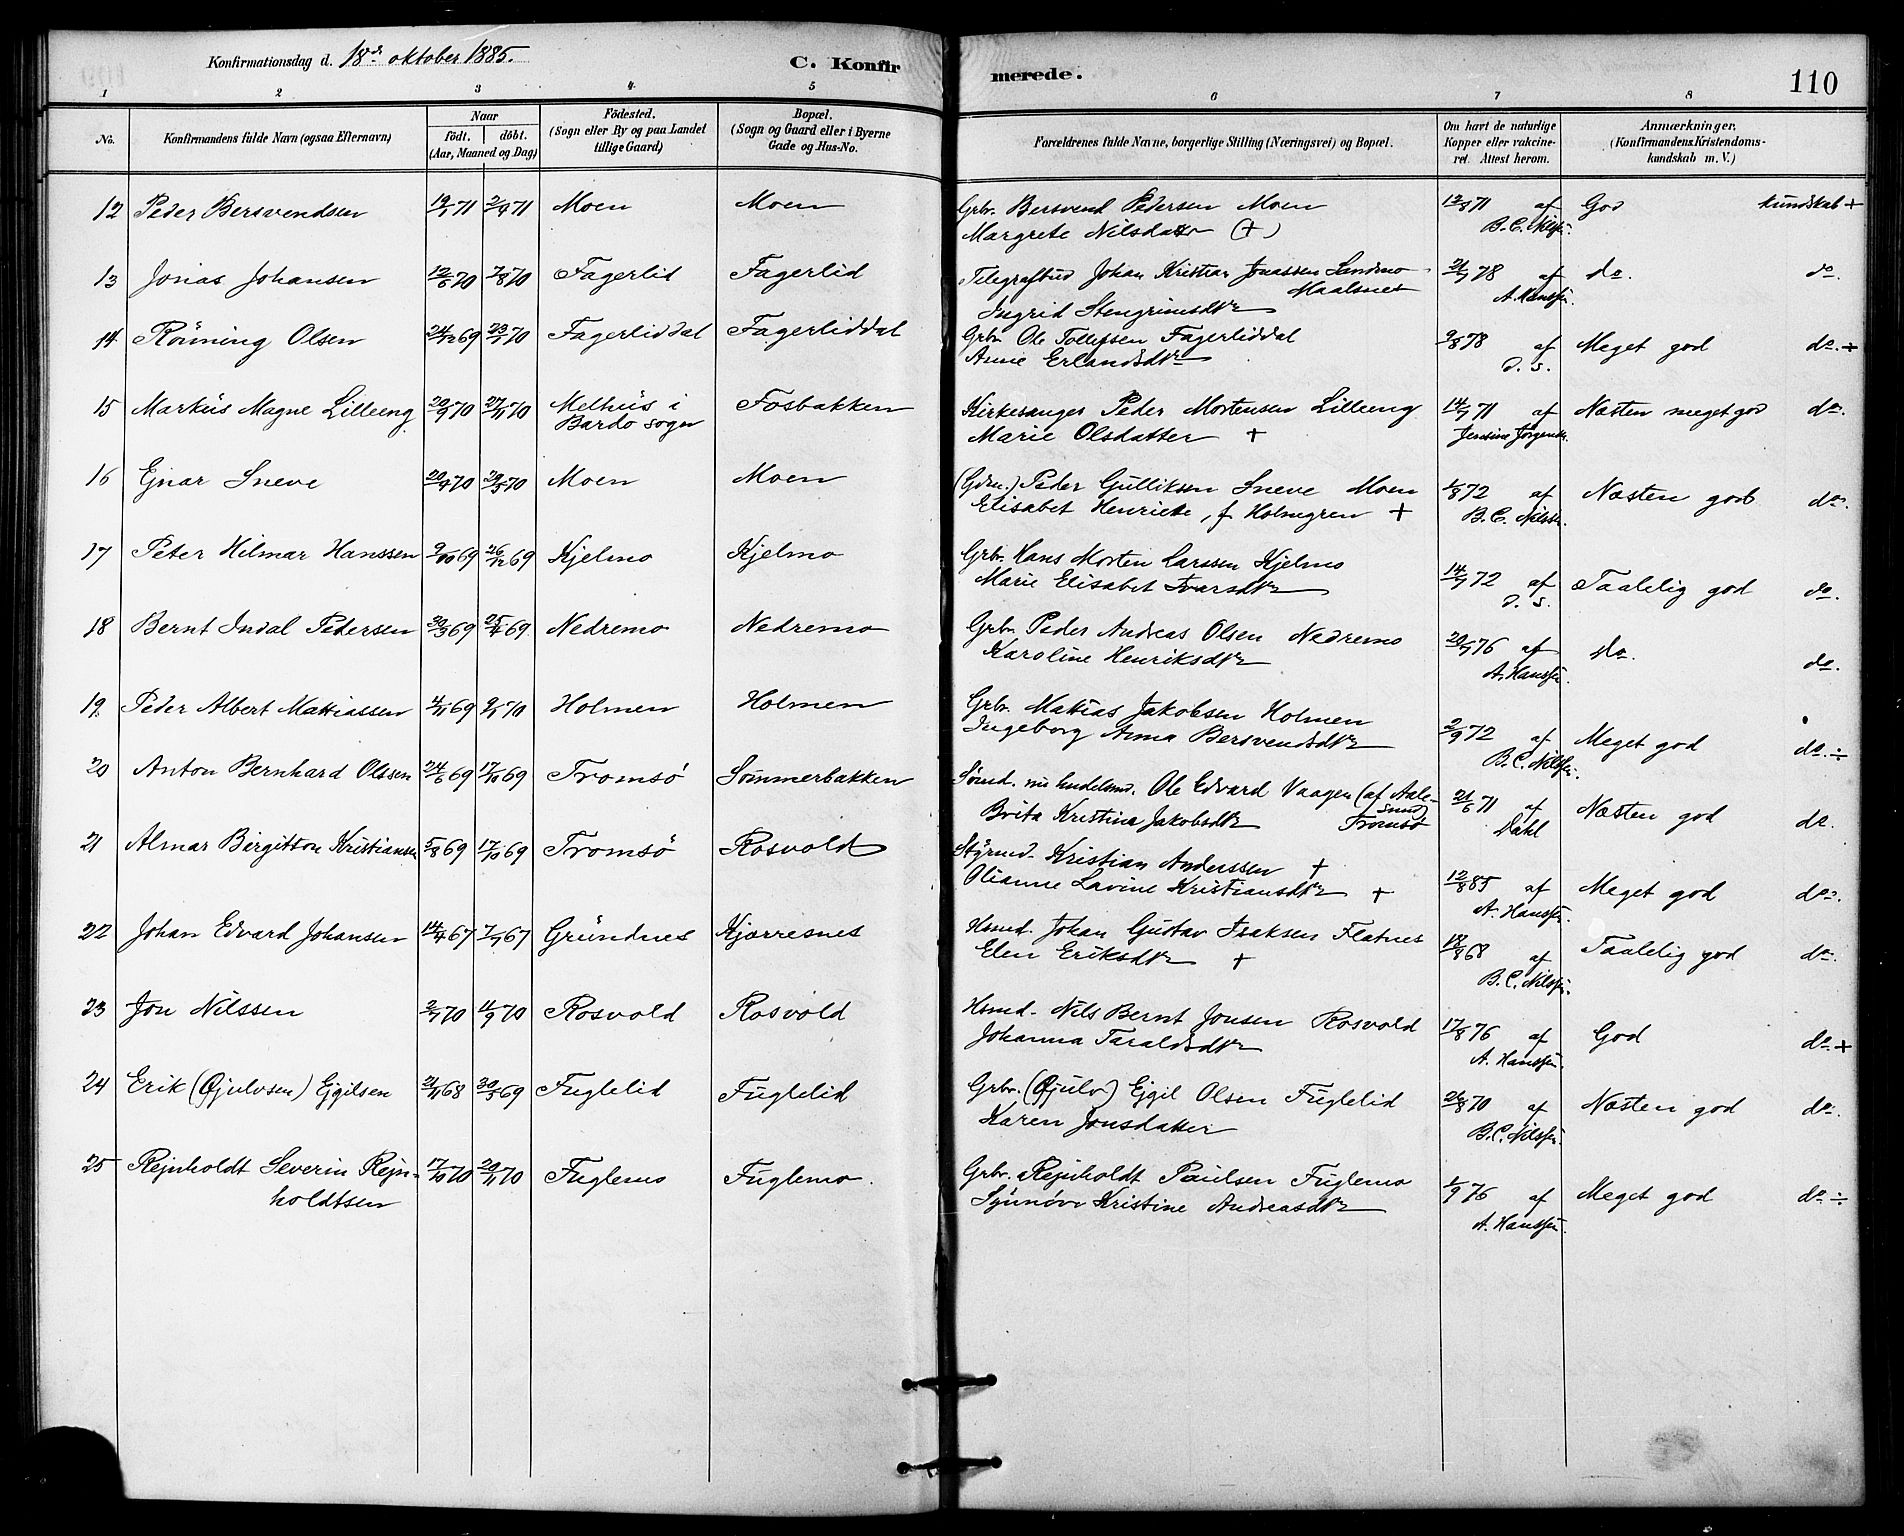 Konfirmationsdag d. 18de oktober 1885.
C. Konfirmerede.
110
1 2 3 4 5 6 7 8
No.
Konfirmandens fulde Navn (ogsaa Efternavn)
Naar
födt. döbt.
(Aar, Maaned og Dag)
Födested.
(Sogn eller By og paa Landet
tillige Gaard)
Bopæl.
(Sogn og Gaard eller i Byerne
Gade og Hus-No.
Forældrenes fulde Navne, borgerlige Stilling (Næringsvei) og Bopæl.
Om havt de naturlige
Kopper eller vakcine-
ret. Attest herom.
Anmærkninger.
(Konfirmandens Kristendoms-
kundskab m. V.)
12 Peder Bersvendsen 19/1 71 2/4 71 Moen Moen Grbr. Bersvend Pedersen Moen 13/8 71 af God kundskab +
Margrete Nilsdatter (+) B. C. Nilssen.
13 Jonas Johansen 12/6 70 7/8 70 Fagerlid Fagerlid Telegrafbud Johan Kristian Jonassen Sandmo 21/7 78 af do. do.
Maalsnes A. Hanssen.
Ingrid Stengrimsdtr
14 Rönning Olsen 24/12 69 23/1 70 Fagerliddal Fagerliddal Grbr. Ole Tollefsen Fagerliddal 9/8 78 af Meget god do. +
Anne Erlandsdtr d. s.
15 Markus Magne Lilleeng 20/9 70 27/11 70 Melhus i Fosbakken Kirkesanger Peder Mortensen Lilleeng 14/7 71 af Næsten meget god do.
Bardo sogn Marie Olsdatter + Jensine Jörgensen.
16 Ejnar Sneve 20/4 70 29/5 70 Moen Moen (Gdm.) Peder Gulliksen Sneve Moen 1/8 72 af Næsten god do.
Elisabet Henriette, f. Holmgren + B. C. Nilssen.
17 Peter Hilmar Hanssen 9/10 69 26/12 69 Kjelmo Kjelmo Grbr. Hans Morten Larssen Kjelmo 14/7 72 af Taalelig god do.
Marie Elisabet Ivarsdtr d. s.
18 Bernt Indal Pedersen 30/3 69 25/4 69 Nedremo Nedremo Grbr. Peder Andreas Olsen Nedremo 20/7 76 af do. do.
Karoline Henriksdtr A. Hanssen.
19. Peder Albert Mattiassen 4/11 69 9/1 70 Holmen Holmen Grbr. Mattias Jakobsen Holmen 2/9 72 af Meget god do. ÷
Ingeborg Anna Bersvendsdtr B. C. Nilssen.
20 Anton Bernhard Olssen 24/6 69 17/10 69 Tromsö Sommerbakken Sömd. nu handelsmd. Ole Edvard Vaagen (af Aale- 21/6 71 af Næsten god do.
sund)
Brita Kristina Jakobsdtr Tromsö Dahl
21 Almar Birgitson Kristiansen 5/8 69 17/10 69 Tromsö Rosvold Styrmd. Kristian Anderssen + 12/8 85 af Meget god do.
Olianne Lavine Kristiansdtr + A. Hanssen.
22 Johan Edvard Johansen 14/4 67 7/7 67 Grundnes Kjærresnes Hsmd. Johan Gustav Isaksen Flatnes 18/8 68 af Taalelig god do.
Elen Eriksdtr + B. C. Nilssen.
23 Jon Nilssen 2/7 70 11/9 70 Rosvold Rosvold Hsmd. Nils Bernt Jonsen Rosvold 17/8 76 af God do. +
Johanna Taraldsdtr A. Hanssen.
24 Erik (Øjulvsen) Ejgilsen 21/11 68 30/5 69 Fuglelid Fuglelid Grbr. (Øjulv) Ejgil Olsen Fuglelid 26/8 70 af Næsten god do.
Karen Jonsdatter B. C. Nilssen.
25 Rejnholdt Severin Rejn- 17/10 70 20/11 70 Fuglemo Fuglemo. Grbr. Rejnholdt Paulsen Fuglemo 1/9 76 af Meget god do. ÷
holdtsen Synnöve Kristine Andreasdtr A. Hanssen.